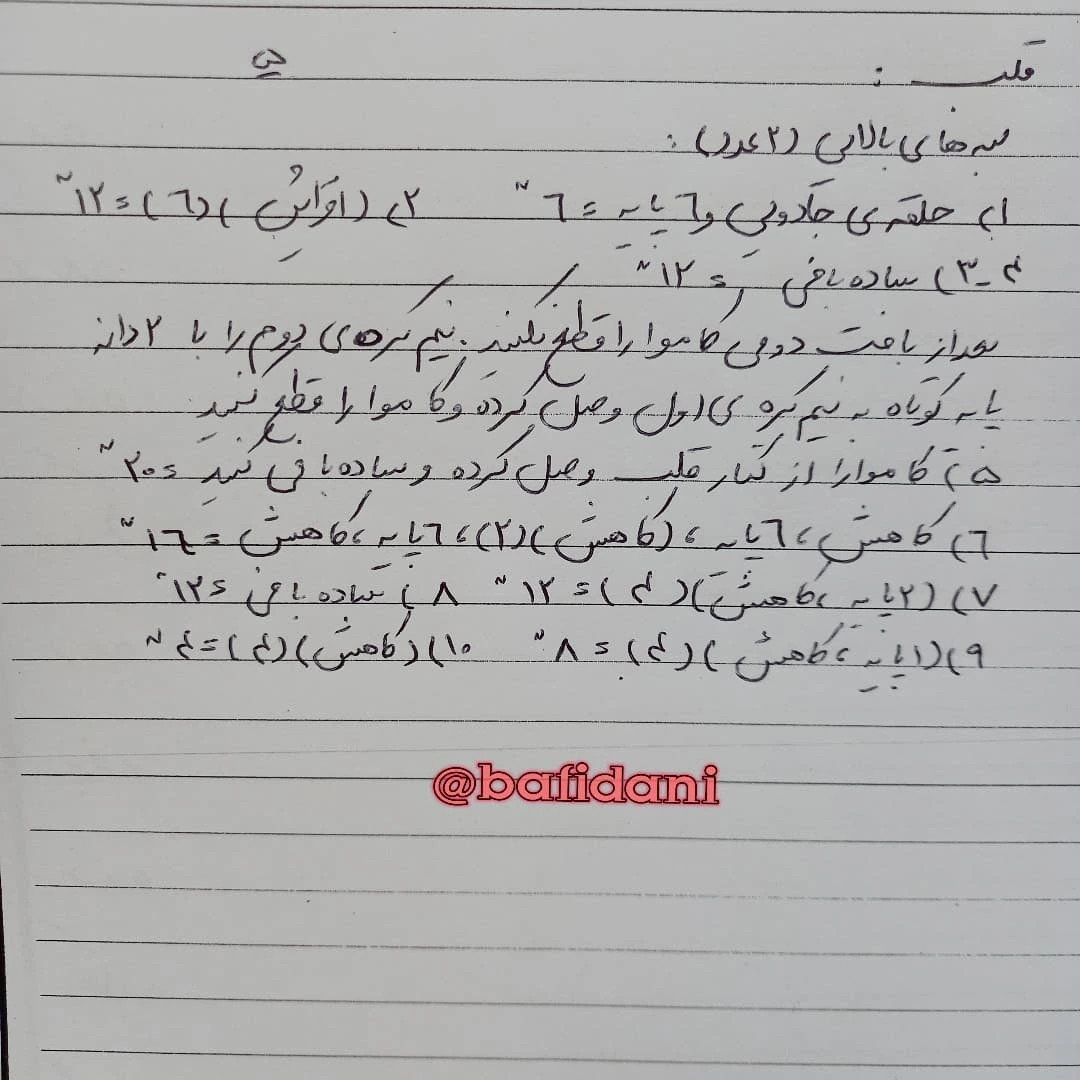 قلب :
لبه های بالایی (۲ عدد) :
۱) حلقه ی جادویی و ۶ پایه = ۶ ۲) (افزایش)(۶) = ۱۲
۳-۴) ساده بافی = ۱۲
بعد از بافت دومی کاموا را قطع نکنید. نیم کره ی دوم را با ۲ دانه
پایه کوتاه به نیم کره ی اول وصل کرده و کاموا را قطع کنید
۵) کاموا را از کنار قلب وصل کرده و ساده بافی کنید = ۲۰
۶) کاهش، ۶ پایه، (کاهش)(۲)، ۶ پایه، کاهش = ۱۶
۷) (۲ پایه، کاهش)(۴) = ۱۲ ۸) ساده بافی = ۱۲
۹) (۱ پایه، کاهش)(۴) = ۸ ۱۰) (کاهش)(۴) = ۴
@bafidani